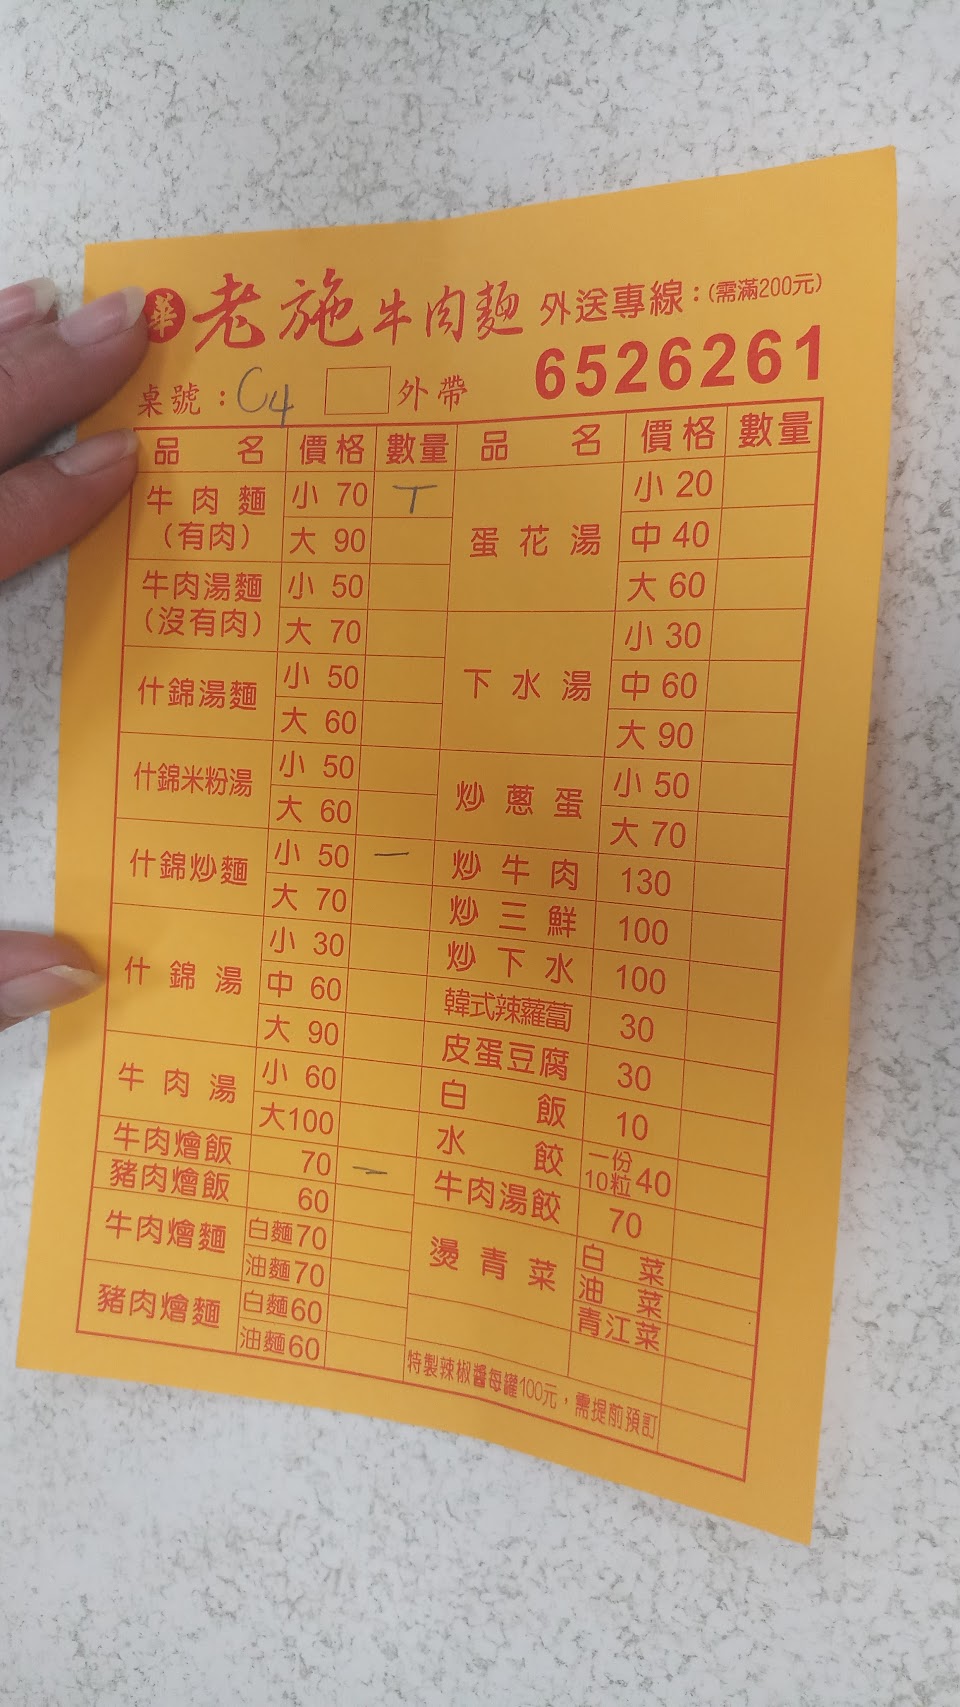 華 老施牛肉麵 外送專線：(需滿200元)
6526261
桌號：C4 外帶
品名 價格 數量 品名 價格 數量
牛肉麵(有肉) 小 70 T
大 90
牛肉湯麵(沒有肉) 小 50
大 70
什錦湯麵 小 50
大 60
什錦米粉湯 小 50
大 60
什錦炒麵 小 50 一
大 70
什錦湯 小 30
中 60
大 90
牛肉湯 小 60
大100
牛肉燴飯 70 一
豬肉燴飯 60
牛肉燴麵 白麵70
油麵70
豬肉燴麵 白麵60
油麵60
蛋花湯 小 20
中 40
大 60
下水湯 小 30
中 60
大 90
炒蔥蛋 小 50
大 70
炒牛肉 130
炒三鮮 100
炒下水 100
韓式辣蘿蔔 30
皮蛋豆腐 30
白飯 10
水餃 一份10粒 40
牛肉湯餃 70
燙青菜 白菜
油菜
青江菜
特製辣椒醬每罐100元，需提前預訂